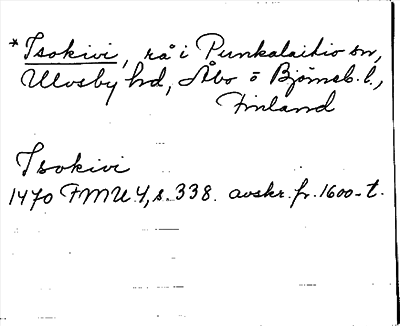 *Isokivi, rå i Punkalaitio sn,
Ulvsby hd, Åbo o Björneb. l.,
Finland
Isokivi
1470 FMU 4, s. 338. avskr. fr. 1600-t.